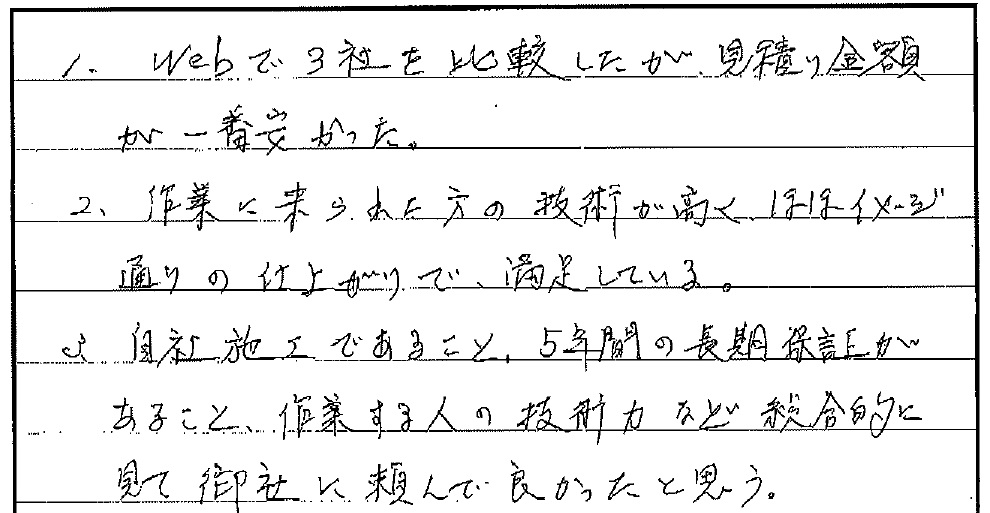 1. Webで3社を比較したが、見積り金額
が一番安かった。
2、作業に来られた方の技術が高く、ほぼイメージ
通りの仕上がりで、満足している。
3、自社施工であること、5年間の長期保証が
あること、作業する人の技術力など総合的に
見て御社に頼んで良かったと思う。